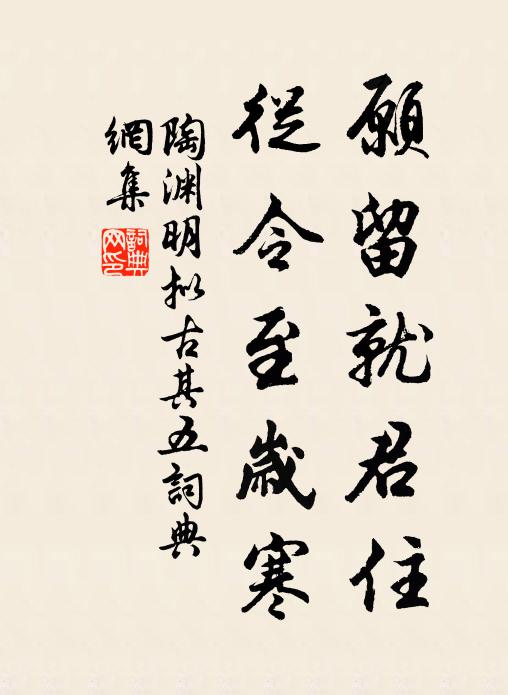 願留就君住
從今至歲寒
陶淵明拟古其五詞典
網集
詞典
网印